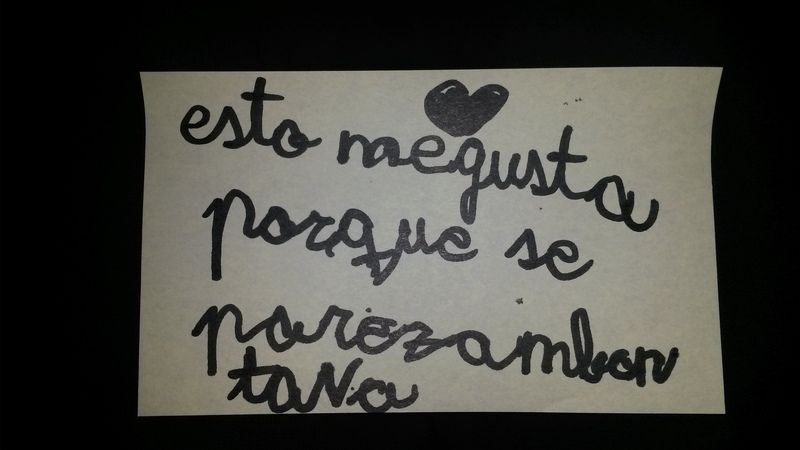 esto megusta
porque se
parezambon
tava